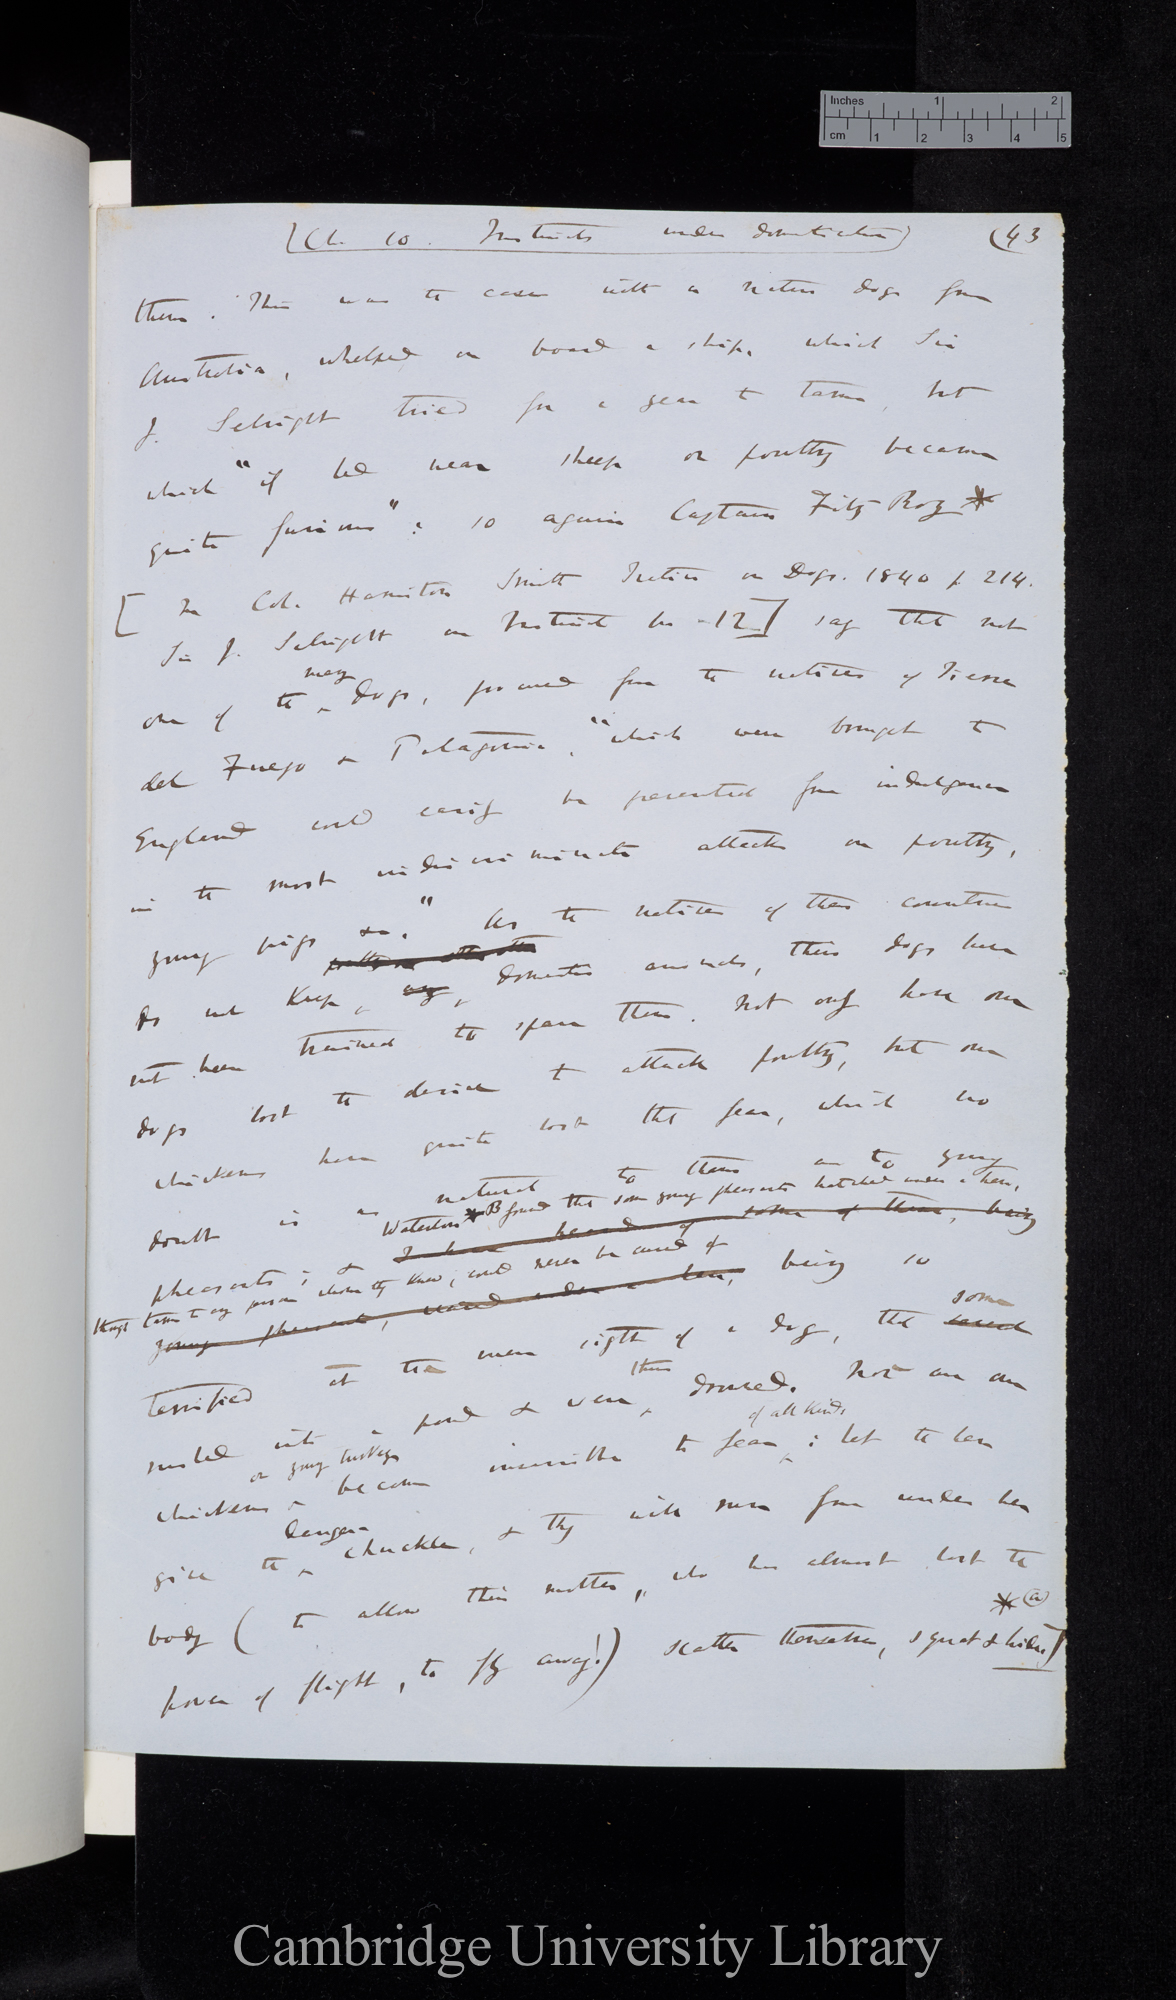 Inches 1 2
cm 1 2 3 4 5
(Ch. 10. Instincts under domestication) (43
them. This was the case with a native dog from
Australia, whelped on board a ship, which Sir
J. Sebright tried for a year to tame, but
which "if led near sheep or poultry became
quite furious": so again Captain Fitz-Roy *
[ In Col. Hamilton Smith on Dogs. 1840 p 214.
Sir J. Sebright on Instinct p. 12.] say that not
one of the many dogs, procured from the natives of Tierra
del Fuego & Patagonia, "which were brought to
England could easily be prevented from indulgence
in the most indiscriminate attacks on poultry,
young pigs &c." As the natives of these countries
do not keep, any, domestic animals, these dogs have
not been trained to spare them. Not only have our
dogs lost the desire to attack poultry, but our
chickens have quite lost that fear, which no
doubt is as natural to them as to young
Waterton * B found that some young pheasants hatched under a hen,
pheasants; & I have heard of some of them, being
though tame to any person whom they knew, could never be cured of
young pheasants, reared under a hen, being so
terrified at the mere sight of a dog, that some
rushed into a pond & were then drowned. Nor are our
of all kinds
or young turkeys
chickens become insensible to fear; let the hen
give the danger chuckle, & they will run from under her
body (to allow their mother, who has almost lost the
* (a)
power of flight, to fly away!) scatter themselves, squat & hide.]
Cambridge University Library